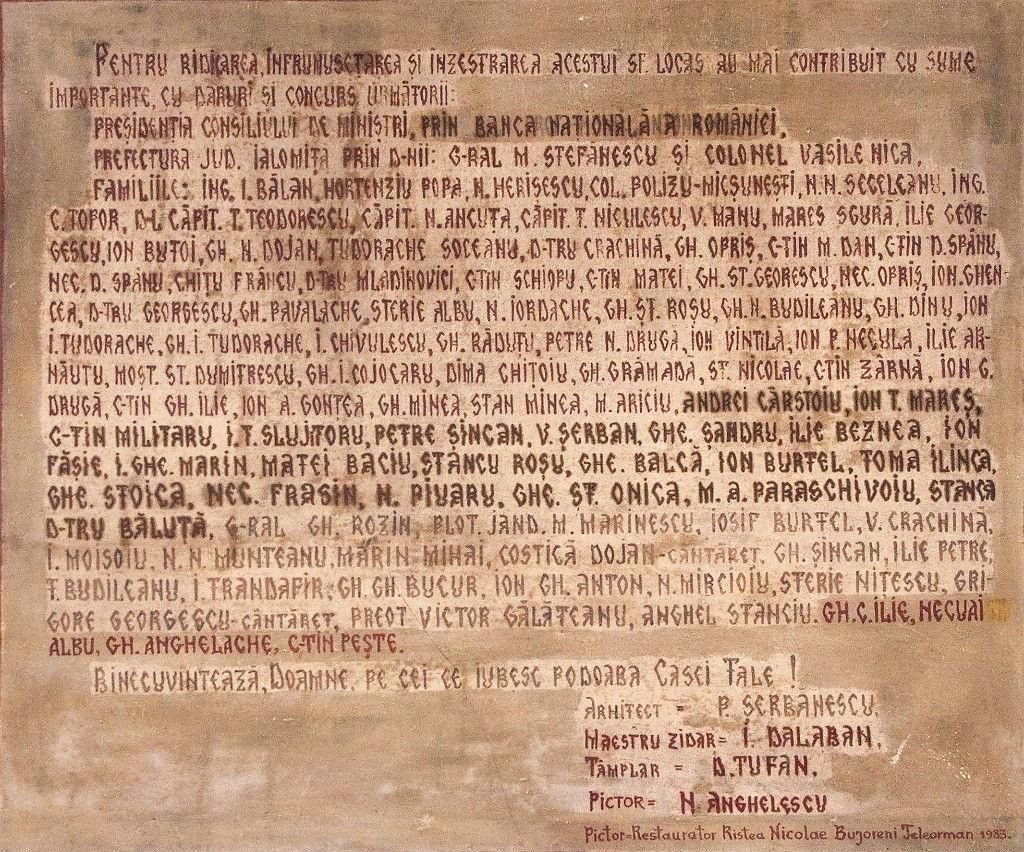 PENTRU RIDICAREA, ÎNFRUMUSEȚAREA ȘI ÎNZESTRAREA ACESTUI SF. LOCAȘ AU MAI CONTRIBUIT CU SUME
IMPORTANTE, CU DARURI ȘI CONCURS URMĂTORII:
PREȘIDENȚIA CONSILIULUI DE MINIȘTRI, PRIN BANCA NAȚIONALĂ A ROMÂNIEI,
PREFECTURA JUD. IALOMIȚA PRIN D-NII: G-RAL M. ȘTEFĂNESCU ȘI COLONEL VASILE NICA,
FAMILIILE: ING. I. BĂLAN, HORTENZIU POPA, N. HERISESCU, COL. POLIZU-MICȘUNEȘTI, N.N. SEGELEANU, ING.
C. TOFOR, D-L CĂPIT. T. TEODORESCU, CĂPIT. N. ANCUȚA, CĂPIT. T. NICULESCU, V. MANU, MAREȘ SGURĂ, ILIE GEOR-
GESCU, ION BUTOI, GH. N. DOJAN, TUDORACHE SOCEANU, D-TRU CRACHINĂ, GH. OPRIȘ, C-TIN M. DAN, C-TIN D. SPÂNU,
NEC. D. SPÂNU, CHIȚU FRÂNCU, D-TRU MLADINOVICI, C-TIN SCHIOPU, C-TIN MATEI, GH. ST. GEORESCU, NEC. OPRIȘ, ION GHEN-
CEA, D-TRU GEORGESCU, GH. PAVALACHE, STERIE ALBU, N. IORDACHE, GH. ȘT. ROȘU, GH. N. BUDILEANU, GH. DINU, ION
I. TUDORACHE, GH. I. TUDORACHE, I. CHIVULESCU, GH. RĂDUȚU, PETRE N. DRUGĂ, ION VINTILĂ, ION P. NECULA, ILIE AR-
NĂUTU, MOST. ST. DUMITRESCU, GH. I. COJOCARU, DIMA CHIȚOIU, GH. GRĂMADĂ, ST. NICOLAE, C-TIN ZÂRNĂ, ION G.
DRUGĂ, C-TIN GH. ILIE, ION A. GONȚEA, GH. MINEA, STAN MINEA, M. ARICIU, ANDREI CÂRSTOIU, ION T. MAREȘ,
C-TIN MILITARU, I. T. SLUJITORU, PETRE ȘINCAN, V. ȘERBAN, GHE. ȘANDRU, ILIE BEZNEA, ION
FĂȘIE, I. GHE. MARIN, MATEI BACIU, STANCU ROȘU, GHE. BALCĂ, ION BURTEL, TOMA ILINCA,
GHE. STOICA, NEC. FRASIN, N. PIVARU, GHE. ȘT. ONICA, M. A. PARASCHIVOIU, STANCA
D-TRU BĂLUȚĂ, G-RAL GH. ROZIN, PLOT. JAND. M. MARINESCU, IOSIF BURTEL, V. CRACHINĂ,
I. MOISOIU, N. N. MUNTEANU, MARIN MIHAI, COSTICĂ DOJAN-CÂNTĂREȚ, GH. ȘINCAN, ILIE PETRE,
T. BUDILEANU, I. TRANDAFIR, GH. GH. BUCUR, ION GH. ANTON, N. MIRCIOIU, STERIE NIȚESCU, GRI-
GORE GEORGESCU-CÂNTĂREȚ, PREOT VICTOR GĂLĂȚEANU, ANGHEL STANCIU. GH. C. ILIE, NECULAI
ALBU, GH. ANGHELACHE, C-TIN PEȘTE.
BINECUVINTEAZĂ, DOAMNE, PE CEI CE IUBESC PODOABA CASEI TALE !
ARHITECT = P. ȘERBĂNESCU,
MAESTRU ZIDAR = I. DALABAN,
TÂMPLAR = D. TUFAN,
PICTOR = N. ANGHELESCU
Pictor-Restaurator Ristea Nicolae Bujoreni Teleorman 1983.